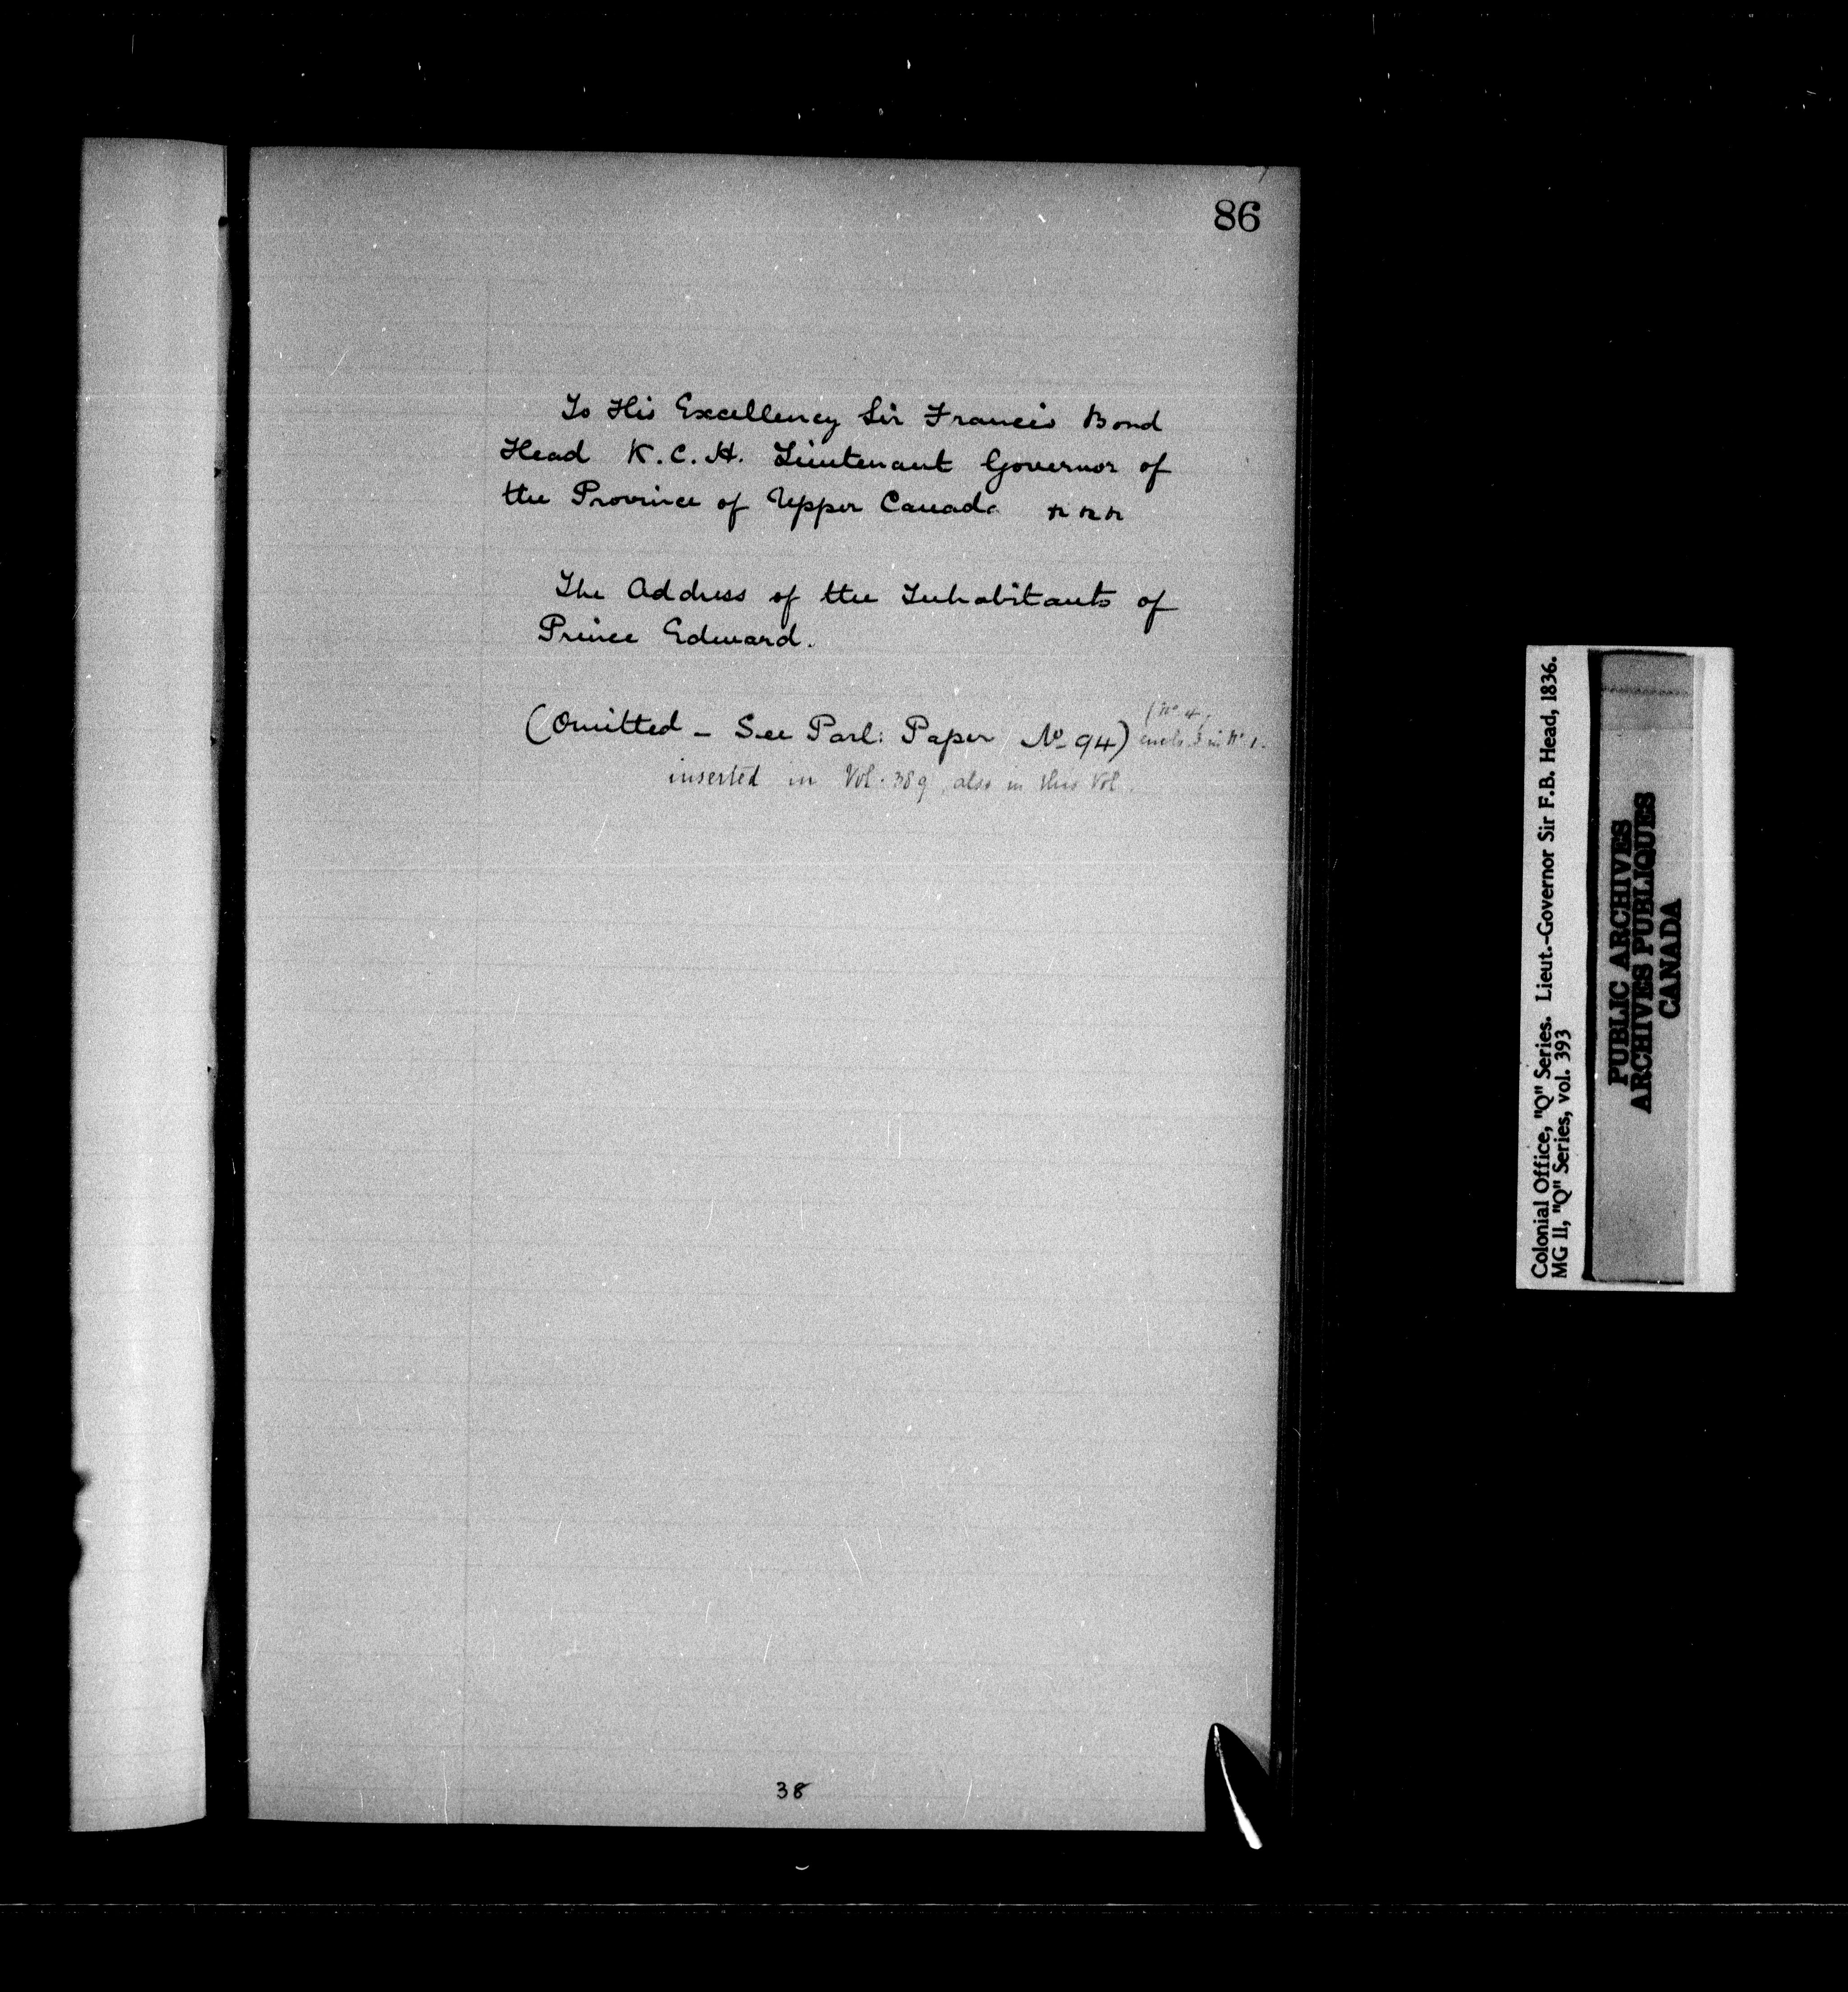 86
To His Excellency Sir Francis Bond
Head K.C.H. Lieutenant Governor of
the Province of Upper Canada
The Address of the Inhabitants of
Prince Edward.
(Omitted - See Parl: Paper No 94) (No 4,
encl. 3 in No 1.
inserted in Vol. 389, also in this Vol.
38
Colonial Office, "Q" Series. Lieut.-Governor Sir F.B. Head, 1836.
MG 11, "Q" Series, vol. 393
PUBLIC ARCHIVES
ARCHIVES PUBLIQUES
CANADA